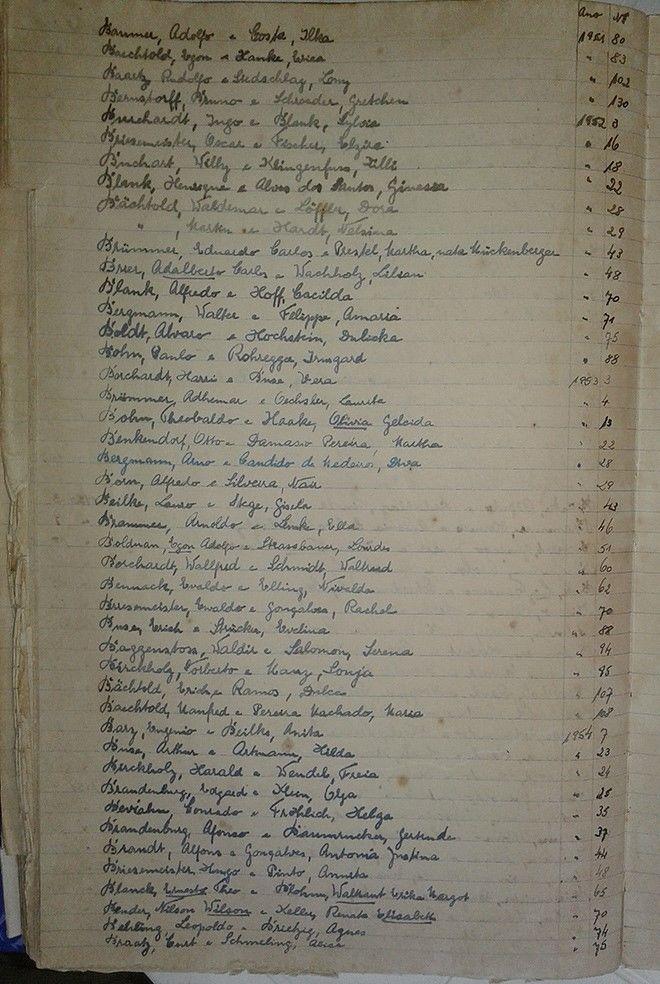 Ano Nº
Bammer, Adolfo e Costa, Ilka 1951 80
Baechtold, Egon e Hanke, Erica " 83
Baartz Rudolfo e Stedschlag, Lony " 102
Bernstorff, Bruno e Schroeder, Gretchen " 130
Burchardt, Ingo e Blank, Sylvia 1952 3
Briesemeister, Oscar e Fischer, Elzira " 16
Buchart, Willy e Klingenfuss, Lilli " 18
Blank, Henrique e Alves dos Santos, Ginessa " 22
Bächtold, Waldemar e Löffler, Dora " 28
" , Martin e Hardt, Nelsina " 29
Brümmer, Eduardo Carlos e Prestel, Martha, nata Muckenberger " 43
Adalberto Carlos e Wachholz, Lilian " 48
Blank, Alfredo e Hoff, Cacilda " 70
Bergmann, Walter e Felippe, Amaria " 71
Boldt, Alvaro e Hochstein, Dulceka " 75
Bohn, Paulo e Rohregger, Irmgard " 88
Borchardt, Harri e Buse, Vera 1953 3
Brümmer, Adhemar e Oechsler, Laurita " 4
Bohn, Theobaldo e Haake, Olivia Geloida " 13
Benkendorf, Otto e Damasio Pereira, Martha " 22
Bergmann, Arno e Candido de Medeiros, Diva " 28
Born, Alfredo e Silveira, Nair " 29
Beilke, Lauro e Stege, Gisela " 43
Brammer, Arnoldo e Lemke, Ella " 46
Boldman, Egon Adolfo e Strassbauer, Lourdes " 51
Borchardt, Wallfred e Schmidt, Waltraud " 60
Bennack, Evaldo e Elling, Nivalda " 62
Briesemeister, Ewaldo e Gonçalves, Rachel " 70
Buse, Erich e Strücker, Evelina " 88
Baggenstoss, Waldir e Salomon, Serena " 94
Birckholz, Norberto e Manz, Sonja " 95
Bächtold, Erich e Ramos, Dulce " 107
Baechtold, Manfred e Pereira Machado, Maria " 108
Barz, Eugenio e Beilke, Anita 1954 7
Buse, Arthur e Artmann, Hilda " 23
Berckholz, Harald e Wendel, Freia " 24
Brandenburg, Edgard e Klein, Olga " 25
Beviahn, Conrado e Fröhlich, Helga " 35
Brandenburg, Afonso e Baumrucker, Gertrude " 37
Brandt, Alfons e Gonçalves, Antonia Justina " 44
Briesemeister, Hugo e Pinto, Annita " 48
Blanck, Ernesto Theo e Bohnn, Waltraut Erika Margot " 65
Bender, Nilson Wilson e Keller, Renate Elisabeth " 70
Behling, Leopoldo e Brietzig, Agnes " 74
Braatz, Curt e Schmeling, " 75